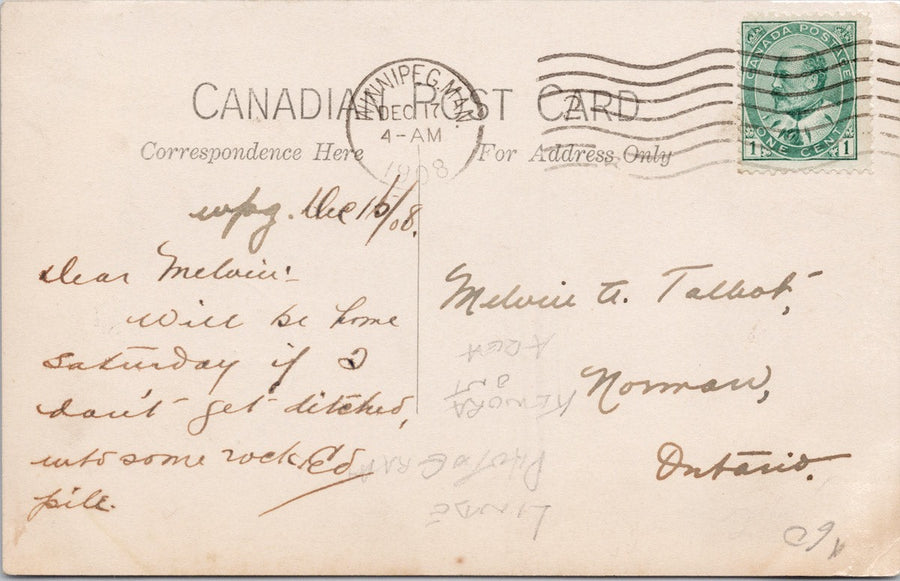 CANADIAN POST CARD
WINNIPEG, MAN.
DEC 17
4-AM
1908
2
CANADA POSTAGE
ONE CENT
1 1
Correspondence Here
For Address Only
Wpg. Dec 15/08.
Dear Melvin:-
Will be home
Saturday if I
don't get ditched,
into some rock
pile.
Ed
Melvin A. Talbot,
Norman,
Ontario.
AREA
KENORA
ONT
PHOTOGRAPH
LINDE